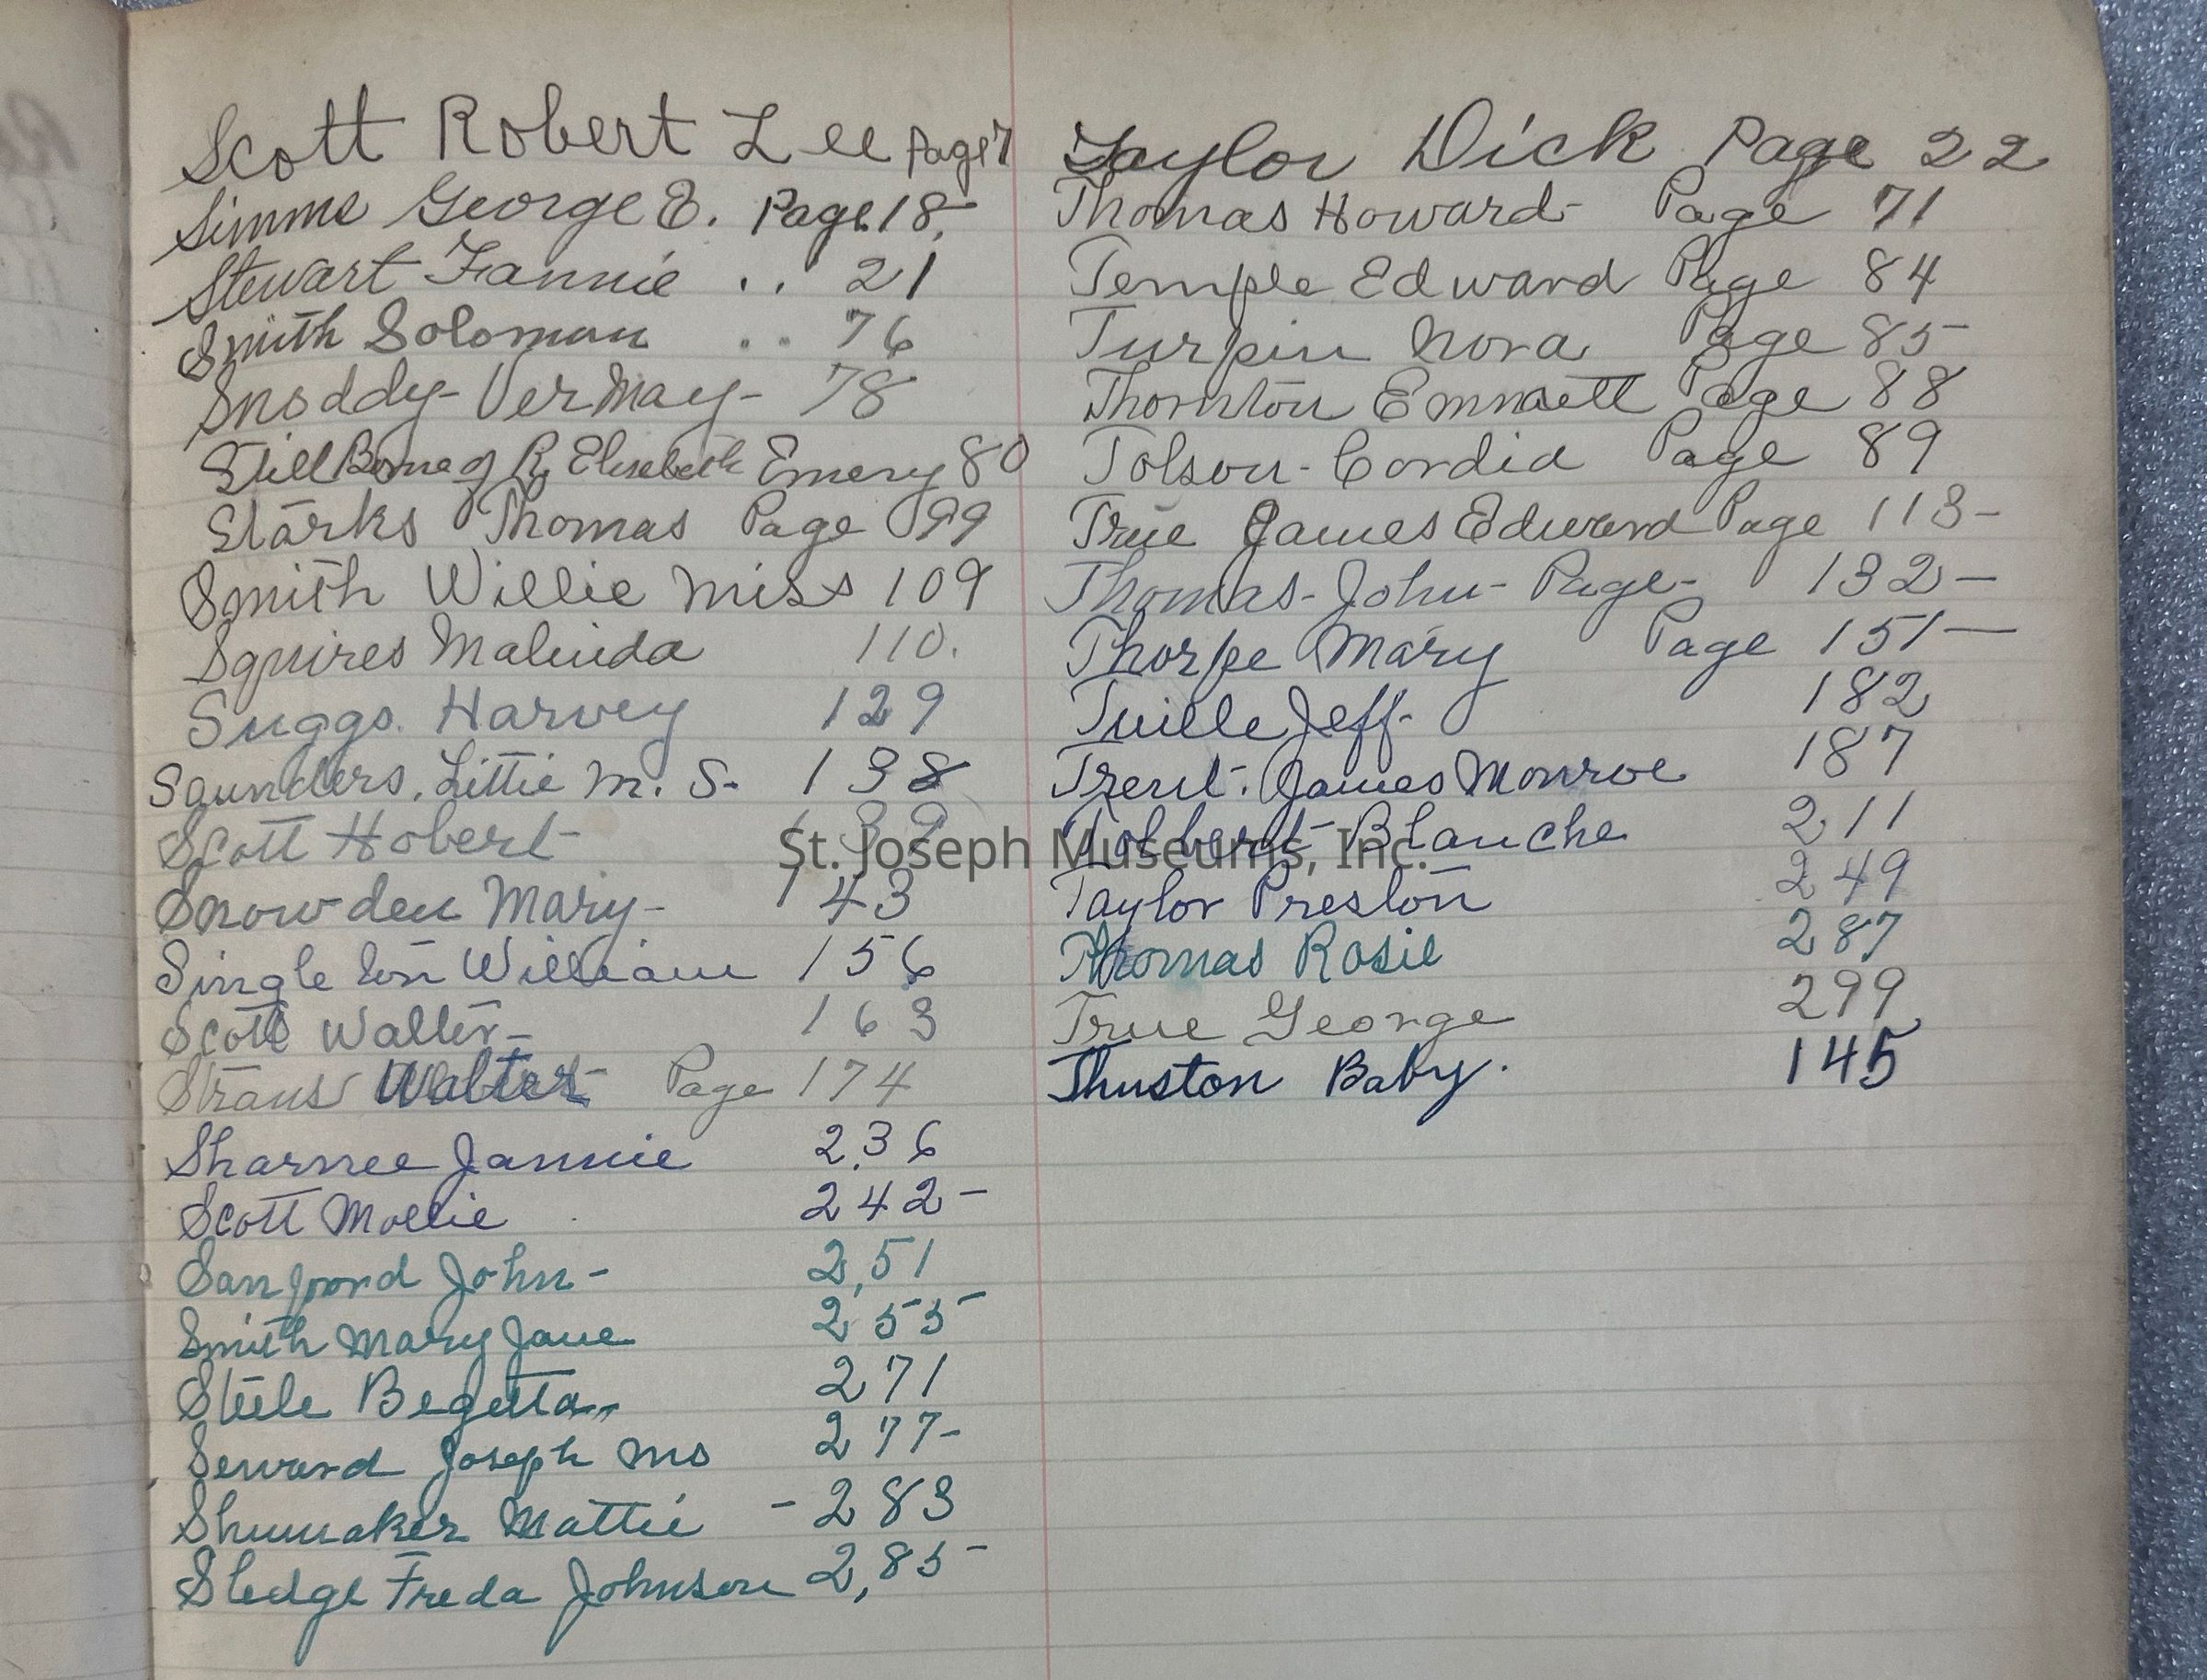 Scott Robert Lee Page 7
Simms George E. Page 18,
Stewart Fannie .. 21
Smith Soloman .. 76
Snoddy- Ver May- 78
Still Borne of R Elisebeth Emery 80
Starks Thomas Page 99
Smith Willie Miss 109
Squires Malinda 110.
Suggs. Harvey 129
Saunders, Littie M. S. 138
Scott Hobert- 139
Snowden Mary- 143
Singleton William 156
Scott Walter- 163
Straus Walter- Page 174
Sharnee Jannie 236
Scott Mollie 242-
Sanford John- 251
Smith Mary Jane 255
Steele Begetta 271
Seward Joseph Ms 277-
Shumaker Mattie - 283
Sledge Freda Johnson 285
Taylor Dick Page 22
Thomas Howard- Page 71
Temple Edward Page 84
Turpin Nora Page 85
Thornton Emmett Page 88
Tolson- Cordia Page 89
True James Edward Page 113-
Thomas- John- Page- 132-
Thorpe Mary Page 151-
Tuille Jeff- 182
Trent. James Monroe 187
Tolbert- Blanche 211
Taylor Preston 249
Thomas Rosie 287
True George 299
Thuston Baby. 145
St. Joseph Museums, Inc.